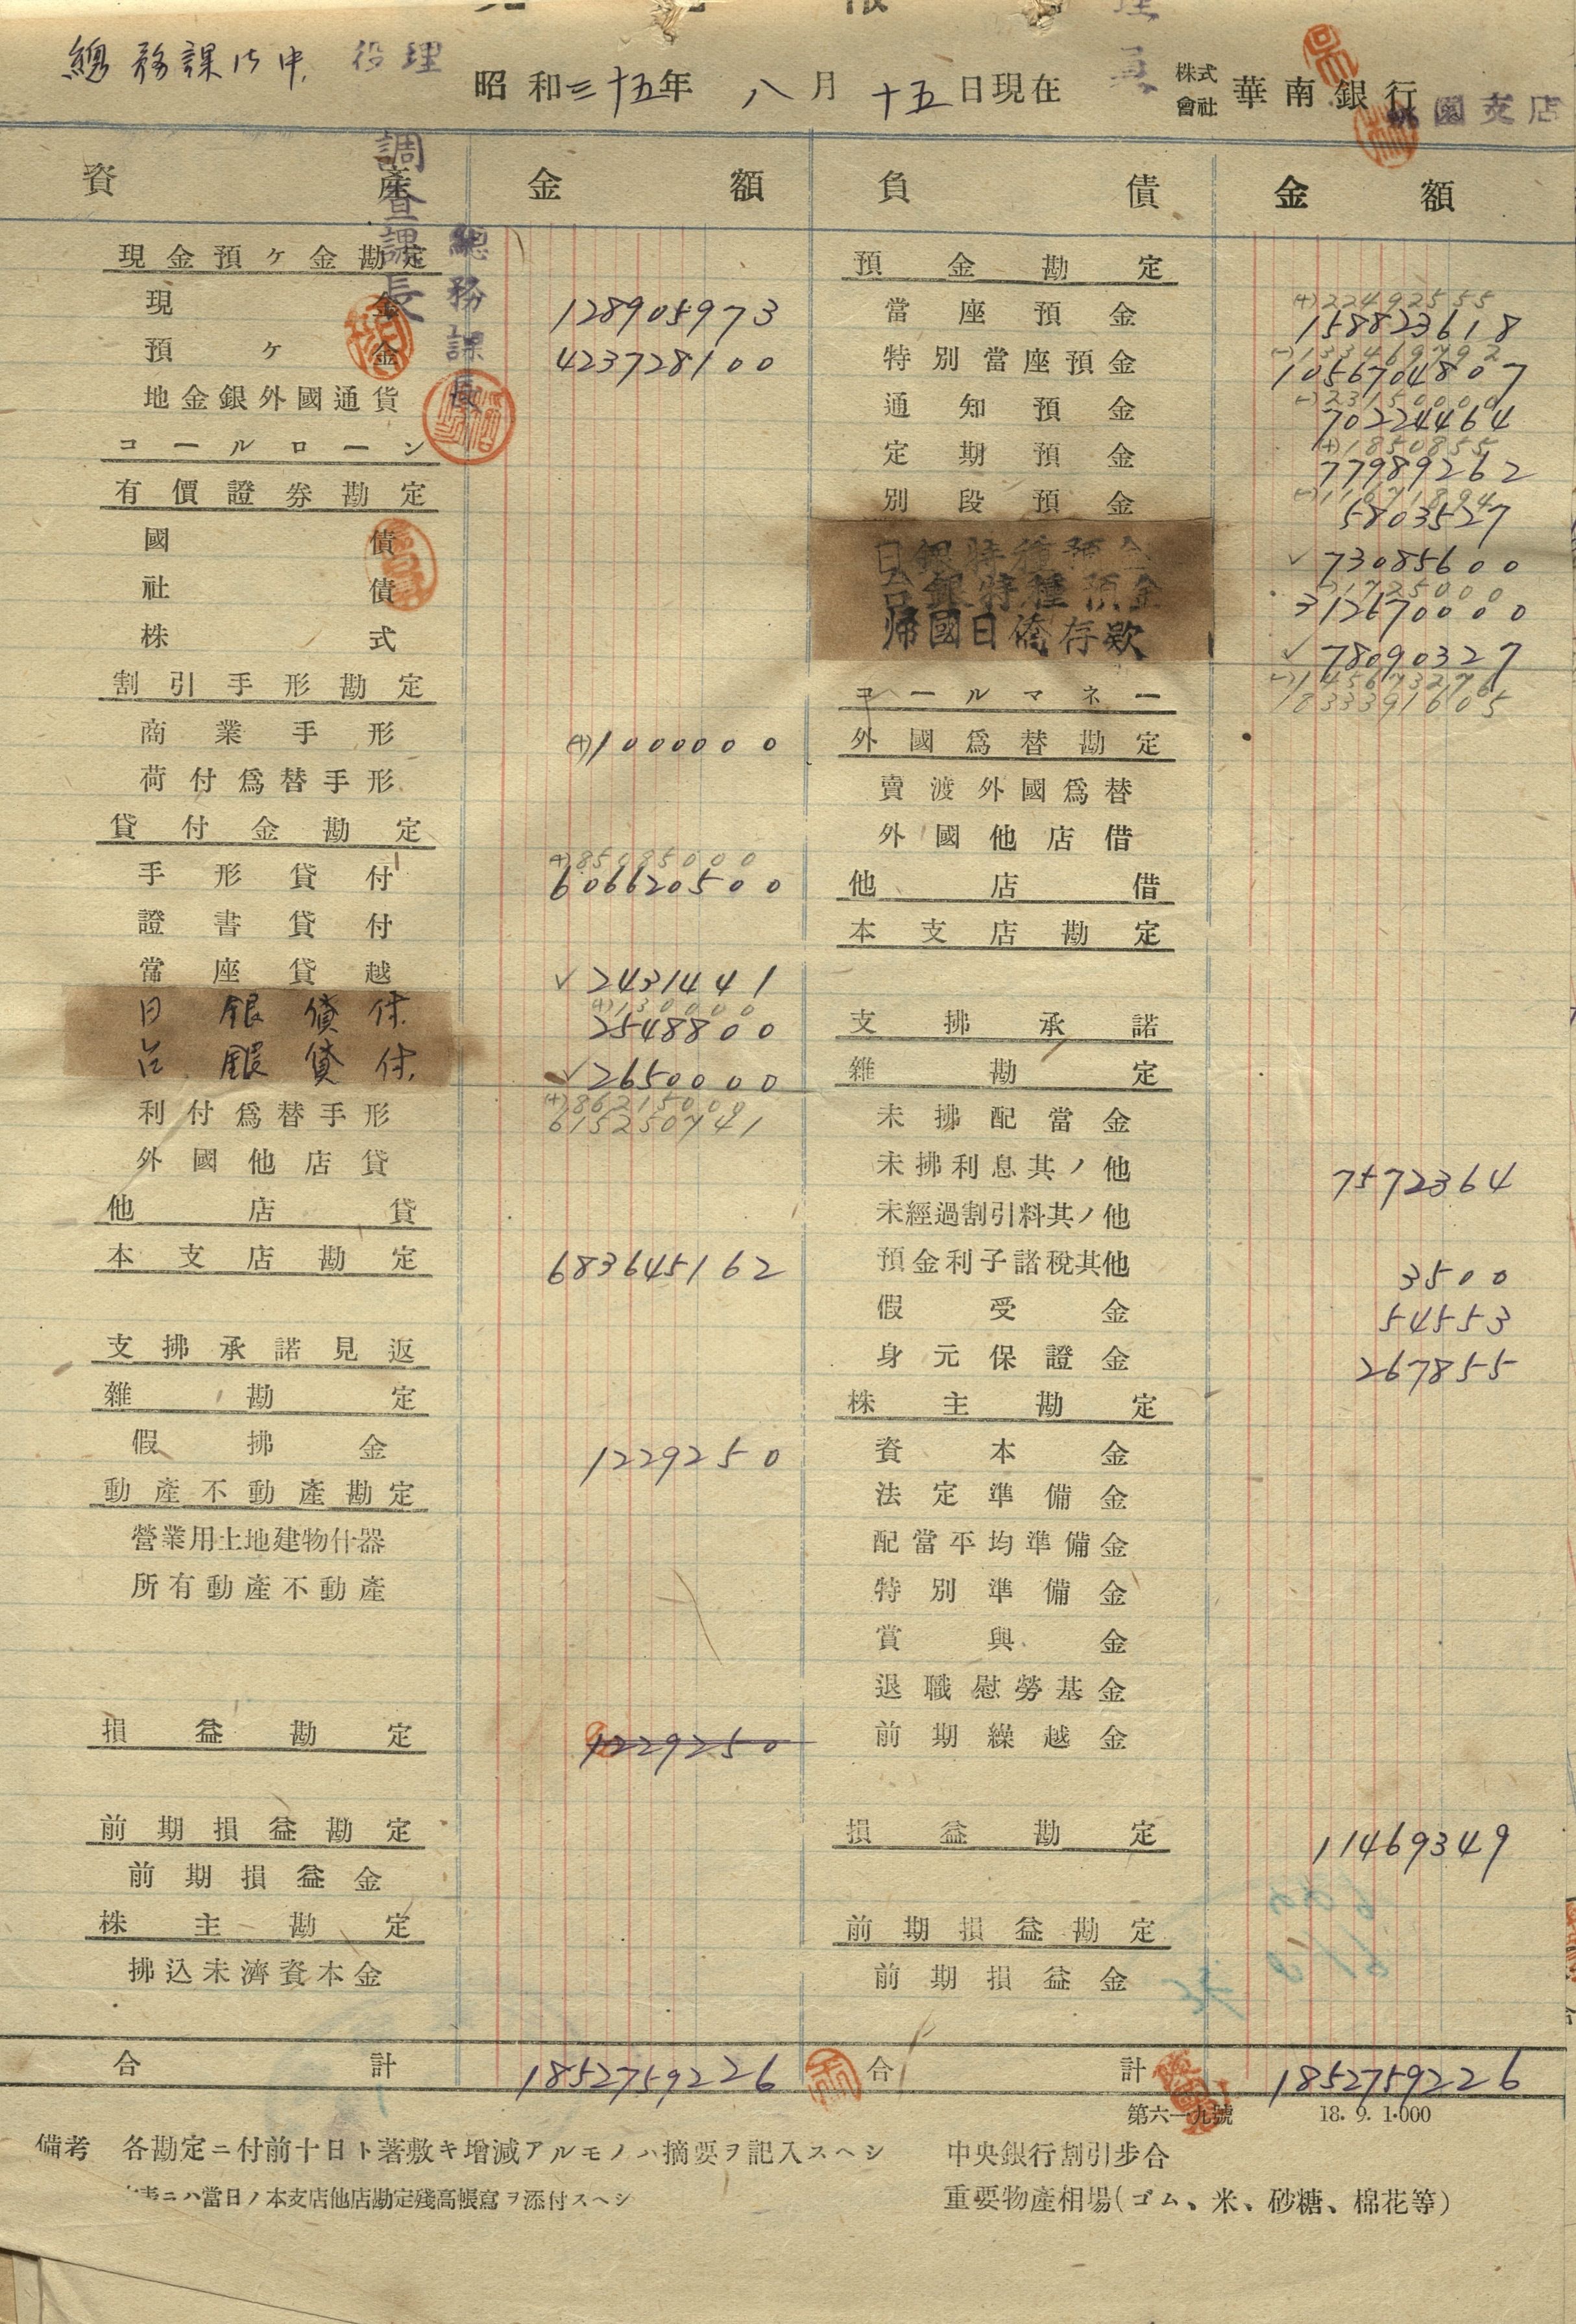 總務課御中 役理
昭和三十五年 八月 十五日現在 株式會社 華南銀行 桃園支店
調查課長
總務課長
資產 金額 負債 金額
現金預ケ金勘定
現金 128905973
預ケ金 423728100
地金銀外國通貨
コールローン
有價證券勘定
國債
社債
株式
割引手形勘定
商業手形 (+)1000000
荷付爲替手形
貸付金勘定
手形貸付 (+)85085000
606620500
證書貸付
當座貸越 ✓2431441
日銀貸付 (+)130000
2548800
台銀貸付 ✓2650000
利付爲替手形 (+)86215000
615250741
外國他店貸
他店貸
本支店勘定 683645162
支拂承諾見返
雜勘定
假拂金 1229250
動產不動產勘定
營業用土地建物什器
所有動產不動產
損益勘定 1229250
前期損益勘定
前期損益金
株主勘定
拂込未濟資本金
合計 1852759226
預金勘定
當座預金 (+)22492555
158823618
特別當座預金 (-)133469792
1056704807
通知預金 (-)23150000
70224464
定期預金 (+)1850855
77989262
別段預金
5803527
日銀特種預金 ✓73085600
台銀特種預金 (-)1725000
312670000
帰國日僑存款 ✓78090327
コールマネー
1833391605
外國爲替勘定
賣渡外國爲替
外國他店借
他店借
本支店勘定
支拂承諾
雜勘定
未拂配當金
未拂利息其ノ他 7572364
未經過割引料其ノ他
預金利子諸稅其他 3500
假受金 54553
身元保證金 267855
株主勘定
資本金
法定準備金
配當平均準備金
特別準備金
賞與金
退職慰勞基金
前期繰越金
損益勘定 11469349
前期損益勘定
前期損益金
合計 1852759226
第六一九號 18.9.1.000
備考 各勘定ニ付前十日ト著敷キ增減アルモノハ摘要ヲ記入スヘシ
表ニハ當日ノ本支店他店勘定殘高帳寫ヲ添付スヘシ
中央銀行割引步合
重要物產相場(ゴム、米、砂糖、棉花等)